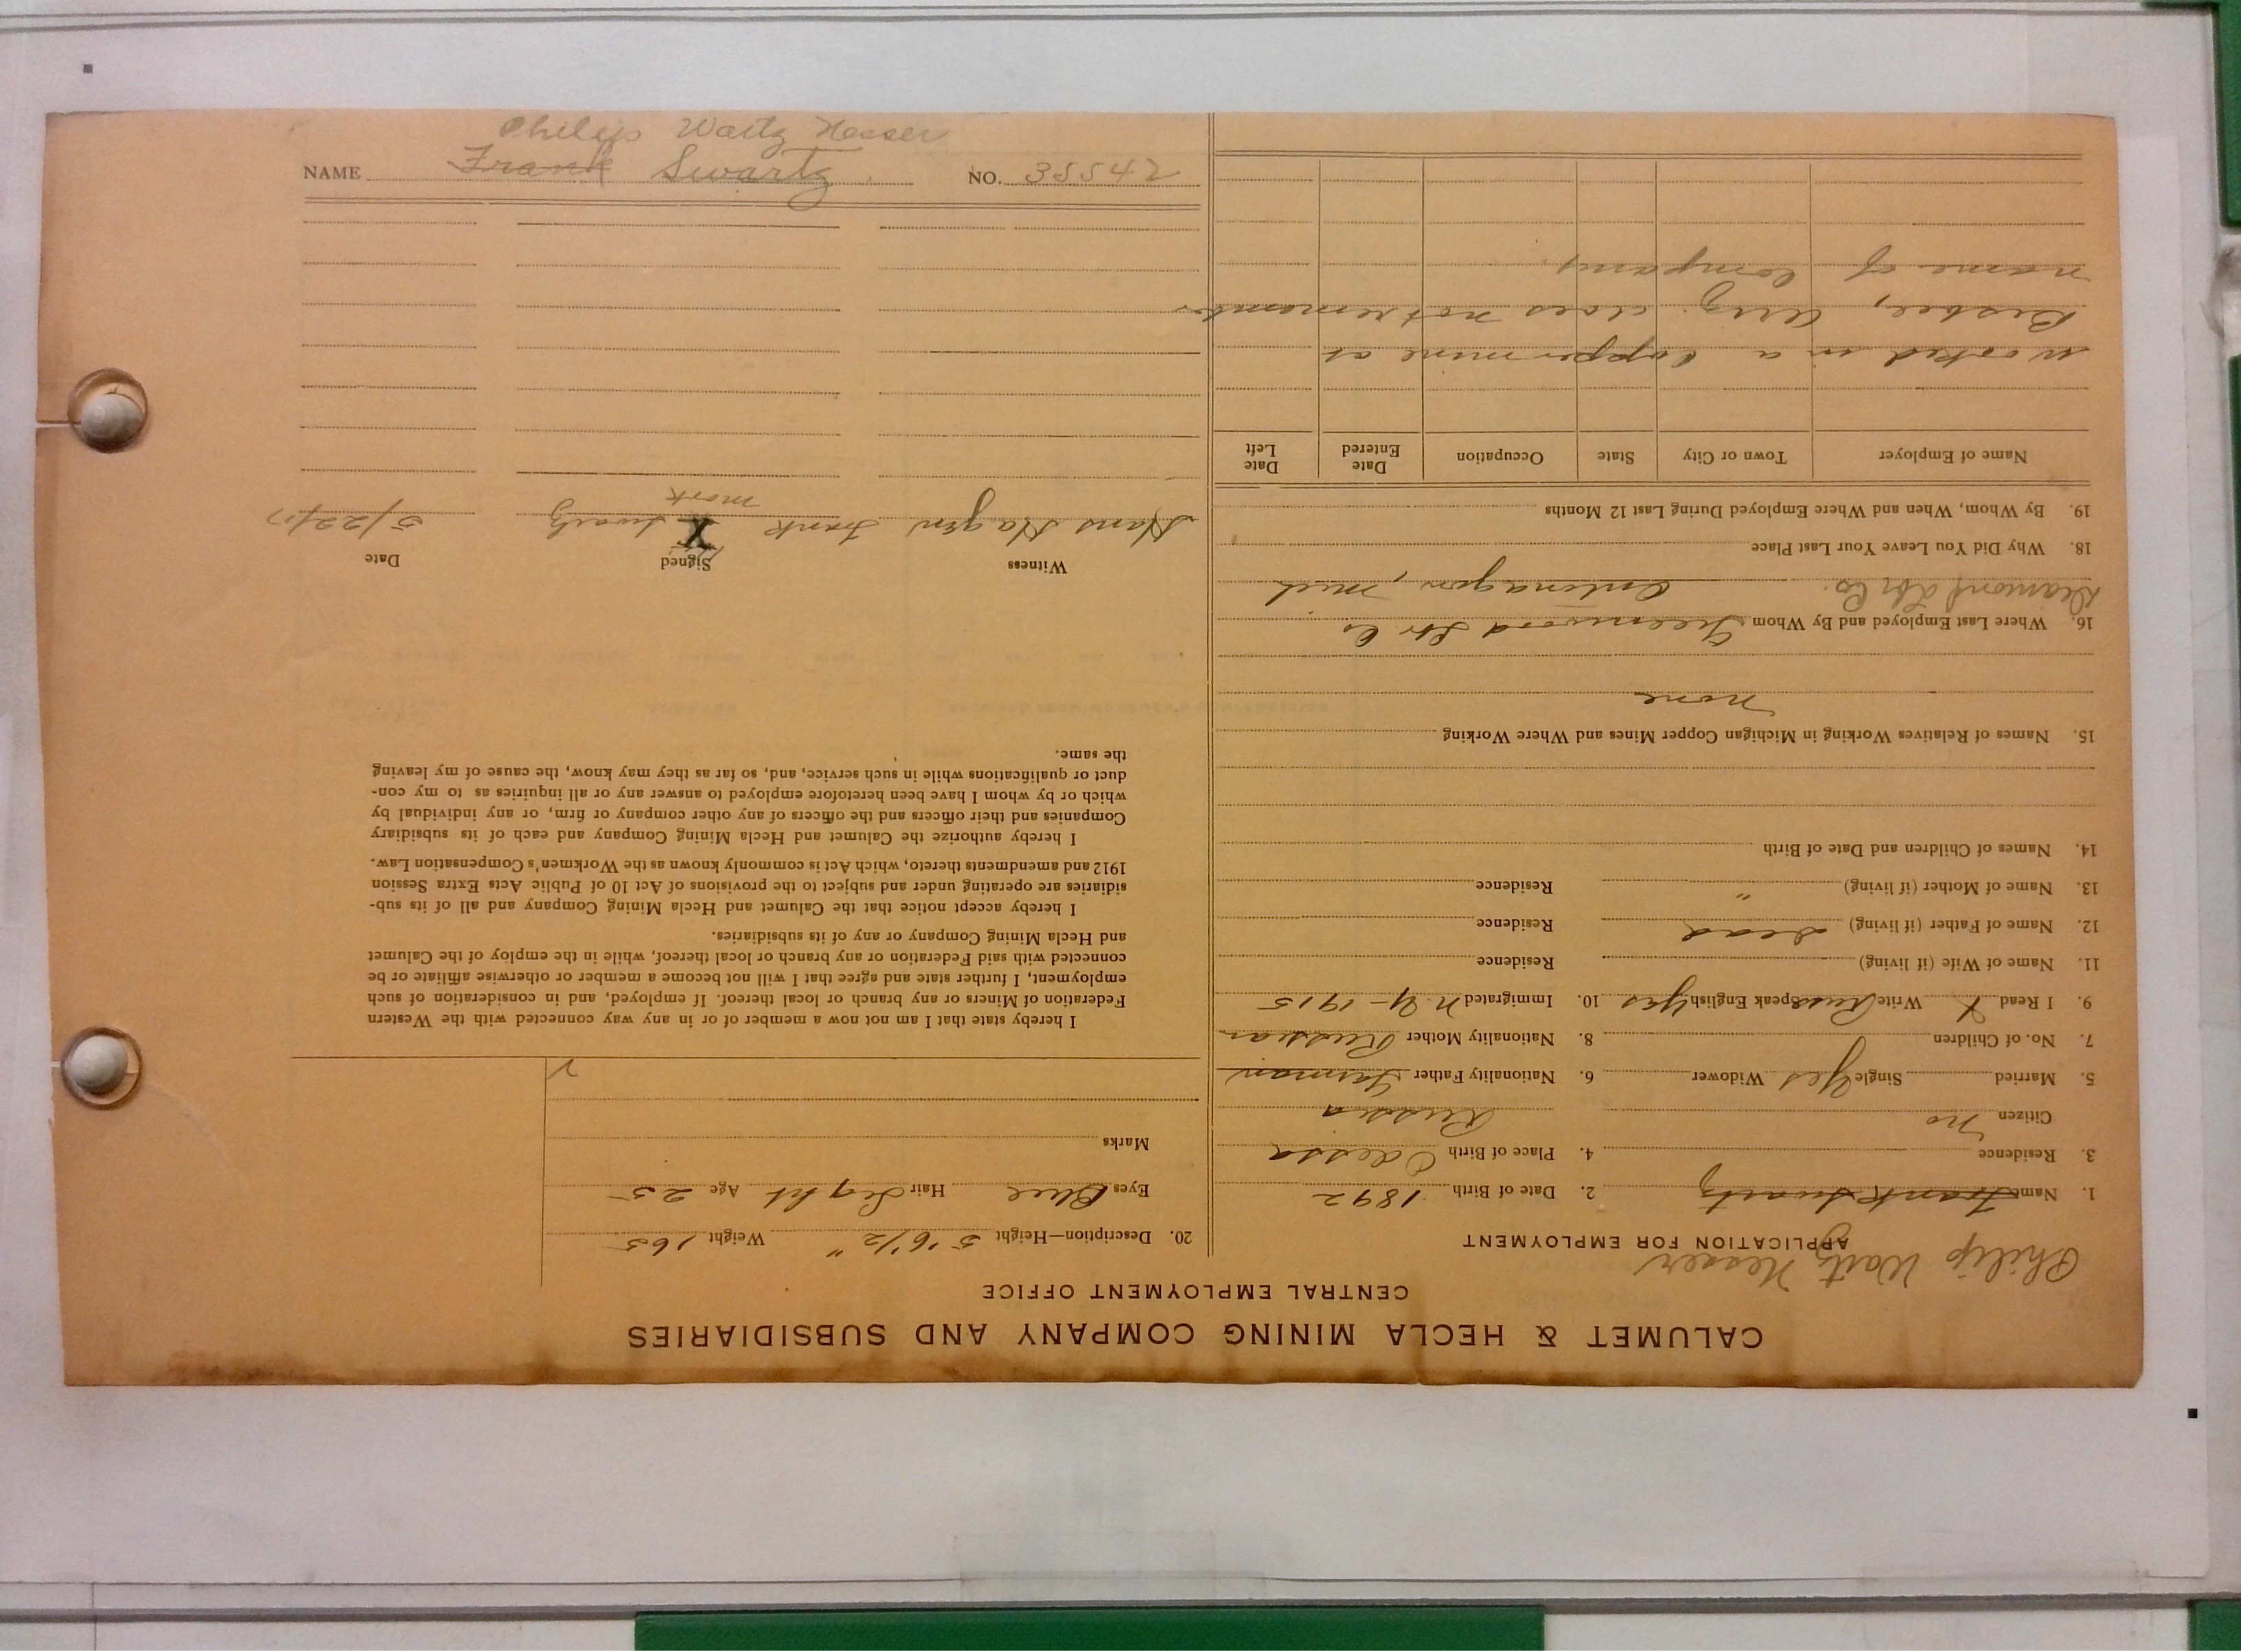 CALUMET & HECLA MINING COMPANY AND SUBSIDIARIES
CENTRAL EMPLOYMENT OFFICE
Philip Waitz Nesser
APPLICATION FOR EMPLOYMENT
1. Name Frank Swartz 2. Date of Birth 1892
3. Residence 4. Place of Birth Odessa
Citizen no Russia
5. Married Single Yes Widower 6. Nationality Father German
7. No. of Children 8. Nationality Mother Russian
9. I Read X Write Russ Speak English Yes 10. Immigrated N.Y - 1915
11. Name of Wife (if living) Residence
12. Name of Father (if living) Dead Residence
13. Name of Mother (if living) " Residence
14. Names of Children and Date of Birth
15. Names of Relatives Working in Michigan Copper Mines and Where Working
none
16. Where Last Employed and By Whom Greenwood Lbr Co
Diamond Lbr Co. Ontonagon, Mich
18. Why Did You Leave Your Last Place
19. By Whom, When and Where Employed During Last 12 Months
Name of Employer Town or City State Occupation Date Entered Date Left
worked in a Copper mine at
Bisbee, Ariz does not remember
name of Company
20. Description—Height 5 '6 1/2 " Weight 165
Eyes Blue Hair Light Age 25
Marks
I hereby state that I am not now a member of or in any way connected with the Western
Federation of Miners or any branch or local thereof. If employed, and in consideration of such
employment, I further state and agree that I will not become a member or otherwise affiliate or be
connected with said Federation or any branch or local thereof, while in the employ of the Calumet
and Hecla Mining Company or any of its subsidiaries.
I hereby accept notice that the Calumet and Hecla Mining Company and all of its sub-
sidiaries are operating under and subject to the provisions of Act 10 of Public Acts Extra Session
1912 and amendments thereto, which Act is commonly known as the Workmen's Compensation Law.
I hereby authorize the Calumet and Hecla Mining Company and each of its subsidiary
Companies and their officers and the officers of any other company or firm, or any individual by
which or by whom I have been heretofore employed to answer any or all inquiries as to my con-
duct or qualifications while in such service, and, so far as they may know, the cause of my leaving
the same.
Witness Signed Date
Hans Hagen Frank his X Swartz 5/22/17
mark
Philip Waitz Nesser
NAME Frank Swartz NO. 35542